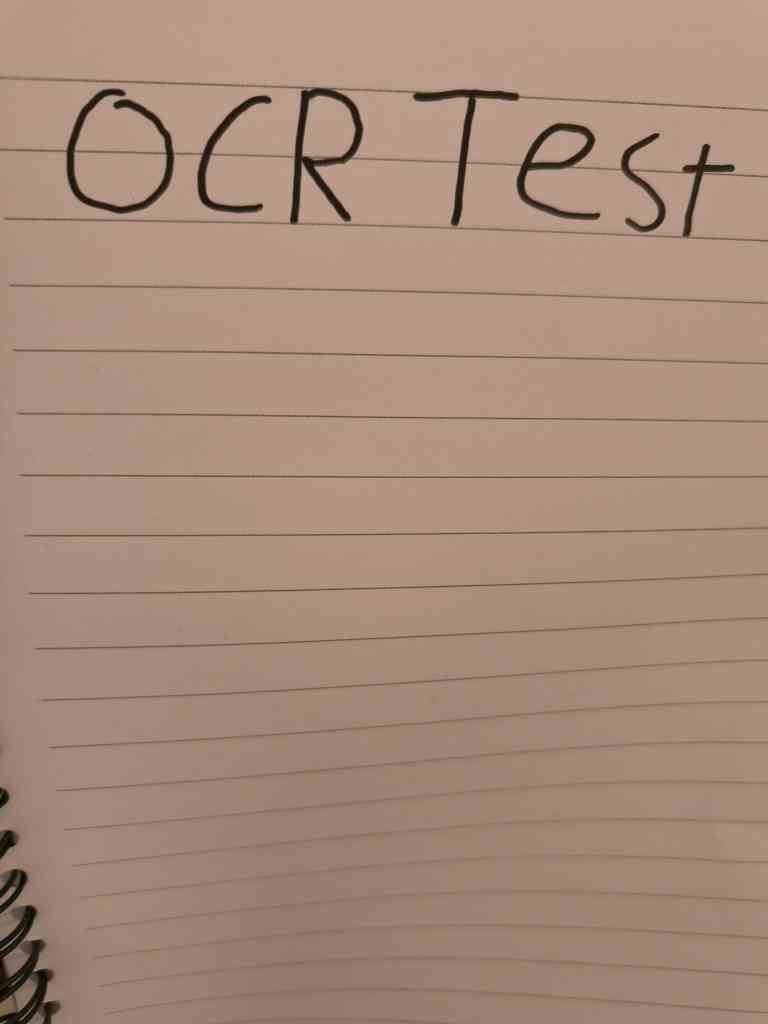 OCR Test